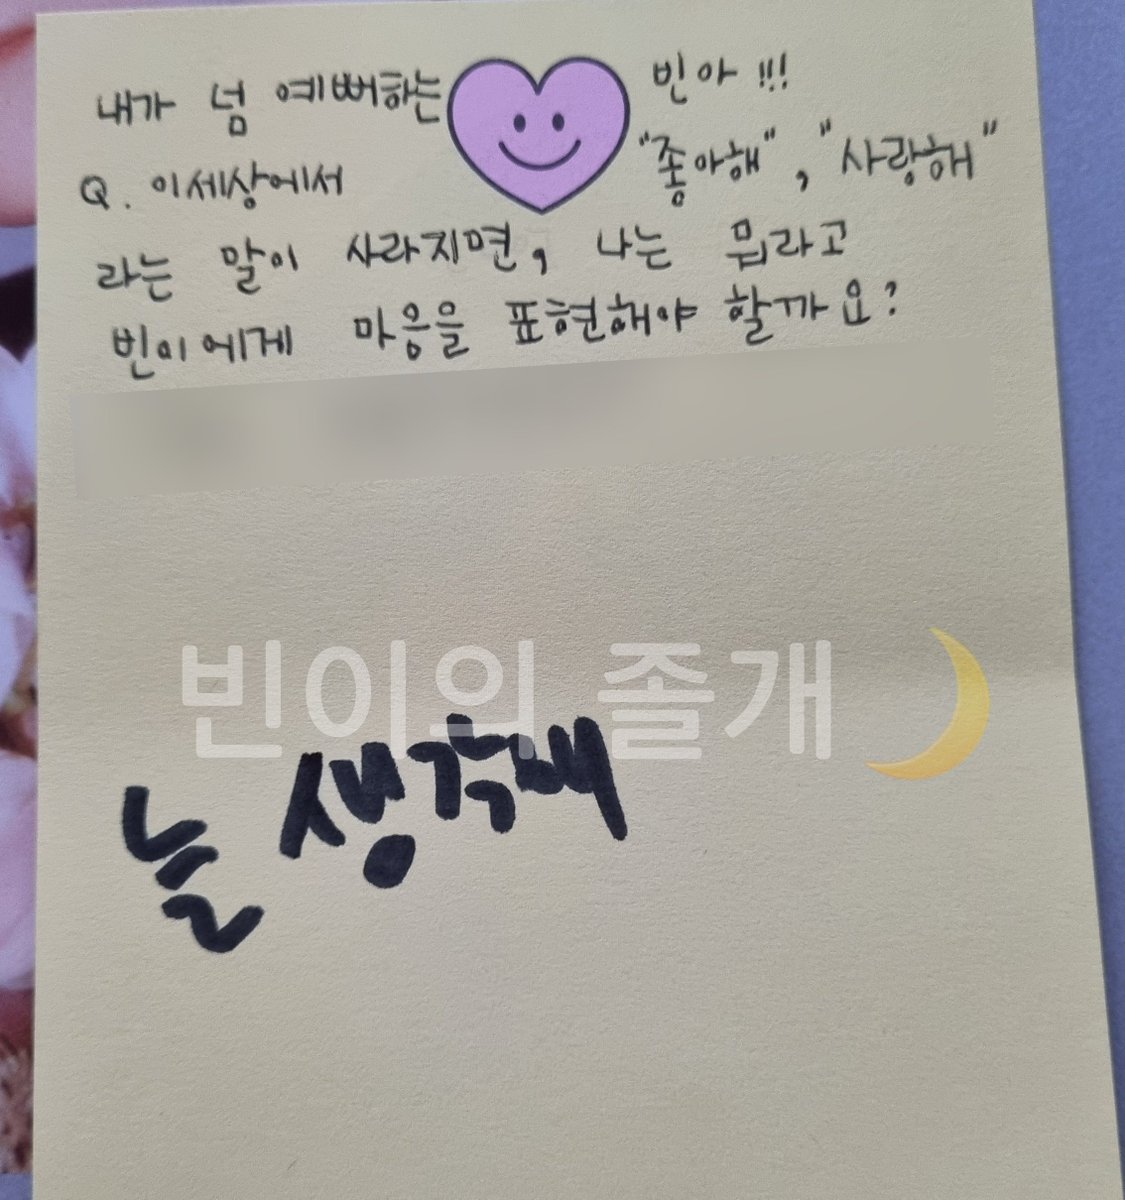 내가 넘 예뻐하는 빈아 !!!
Q. 이세상에서 "좋아해", "사랑해"
라는 말이 사라지면, 나는 뭐라고
빈이에게 마음을 표현해야 할까요?
빈이의 졸개
늘 생각해